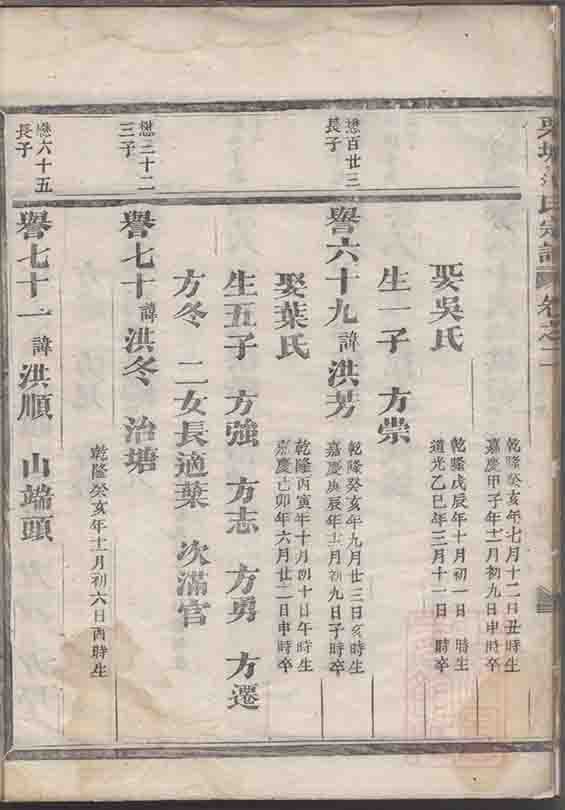 氏宗譜 卷之二
乾隆癸亥年七月十二日丑時生
嘉慶甲子年十二月初九日申時卒
娶吳氏
乾隆戊辰年十月初一日 時生
道光乙巳年三月十一日 時卒
生一子 方崇
懋百廿三
長子
譽六十九 諱 洪芳
乾隆癸亥年九月廿三日亥時生
嘉慶庚辰年十二月初九日子時卒
娶葉氏
乾隆丙寅年十月初十日午時生
嘉慶己卯年六月廿二日申時卒
生五子 方強 方志 方勇 方遷
方冬 二女長適葉 次滿宫
懋三十二
三子
譽七十 諱 洪冬 治塘
乾隆癸亥年十二月初六日酉時生
懋六十五
長子
譽七十一 諱 洪順 山端頭